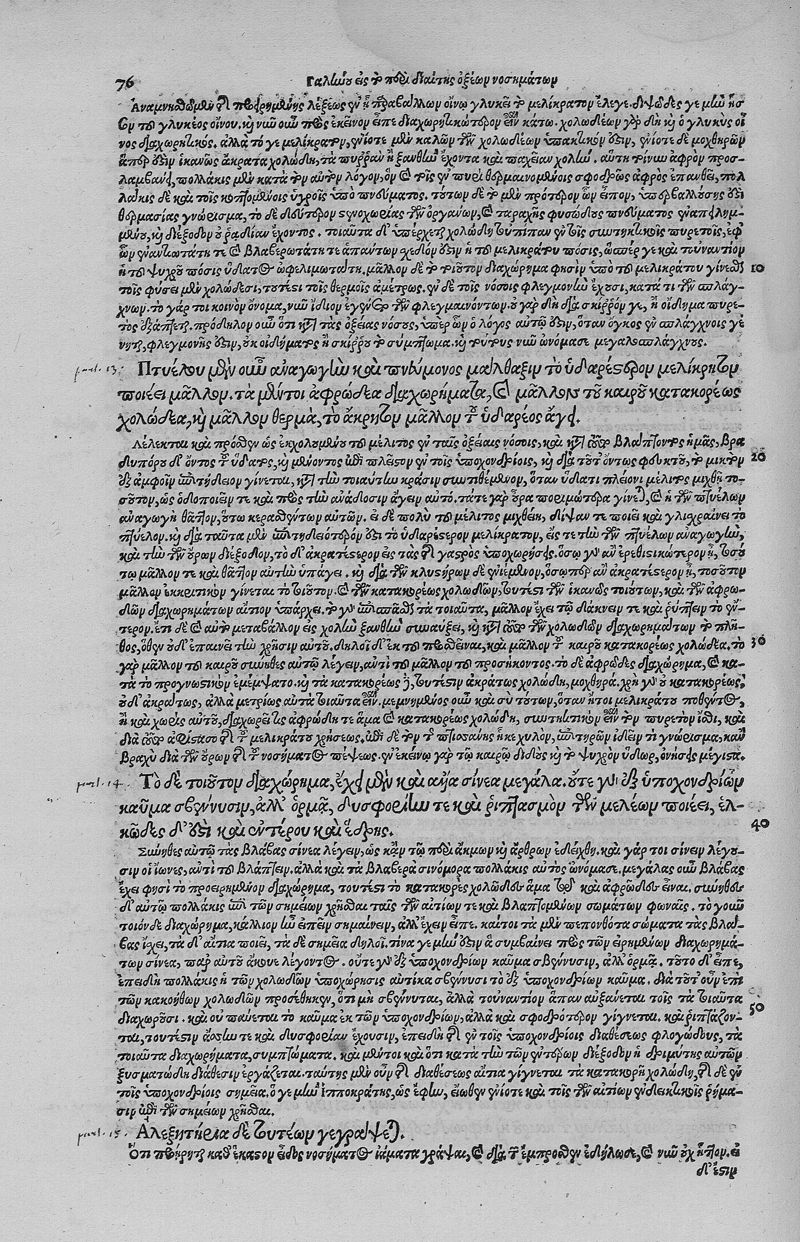 76 Γαλίωυ εἰς τὸ πρὶ διαίτης ὀξέων νοσημάτων
Ἀναμνησθῶμεν τῆς προειρημένης λέξεως ἐν ᾗ παραβάλλων οἴνῳ γλυκεῖ τὸ μελίκρατον ἔλεγε. διψῶδες γε μὴν ἧσ-
σον τοῦ γλυκέος οἴνου. καὶ νῦν οὖν πρὸς ἐκεῖνον εἶπε διαχωρητικώτερον εἶναι κάτω. χολωδέων γάρ ἐστι καὶ ὁ γλυκὺς οἶ-
νος διαχωρητικός. ἀλλὰ τό γε μελίκρατον, ἐνίοτε μὲν καλῶν τῶν χολωδέων ὑπακτικόν ἐστιν, ἐνίοτε δὲ μοχθηρῶν
ἅπερ ἐστὶν ἱκανῶς ἄκρατα χολώδη, τὰ πυρρὰν ἢ ξανθὴν ἔχοντα καὶ παχεῖαν χολήν. αὕτη τοίνυν ἀφρὸν προσ-
λαμβάνει, πολλάκις μὲν κατὰ τὸν αὐτὸν λόγον, ὃν καὶ τοῖς ἐν πυρὶ θερμαινομένοις σφοδρῶς ἀφρὸς ἐπανθεῖ, πολ
λάκις δὲ καὶ τοῖς κινουμένοις ὑγροῖς ὑπὸ πνεύματος. τούτων δὲ τὸ μὲν πρότερον ὧν εἶπον, ὑπερβαλλούσης ἐστὶ
θερμασίας γνώρισμα, τὸ δὲ δεύτερον στενοχωρίας τῶν ὀργάνων, καὶ ταραχῆς φυσώδους πνεύματος ἐναπειλημ-
μένου, καὶ διέξοδον οὐ ῥᾳδίαν ἔχοντος. τοιαῦτα δ' ὑπέρχεται χολώδη τοὐπίπαν ἐν τοῖς συντηκτικοῖς πυρετοῖς, ἐφ'
ὧν ἐναντιωτάτη τε καὶ βλαβερωτάτη τε ἁπάντων σχεδόν ἐστιν ἡ τοῦ μελικράτου πόσις, ὥσπερ γε καὶ τοὐναντίον
ἡ τοῦ ψυχροῦ πόσις ὕδατος ὠφελιμωτάτη, μᾶλλον δὲ τὸ τοιοῦτον διαχώρημά φησιν ὑπὸ τοῦ μελικράτου γίνεσθαι 10
τοῖς φύσει μὲν χολώδεσι, τουτέστι τοῖς θερμοῖς ἀμέτρως, ἐν δὲ τοῖς νόσοις φλεγμονὴν ἔχουσι, κατά τι τῶν σπλάγ-
χνων. τὸ γάρ τοι κοινὸν ὄνομα, νῦν ἴδιον ἐγένετο τῶν φλεγμαινόντων. οὐ γὰρ δὴ διὰ σκίρρον γε, ἢ οἴδημα πυρε-
τὸς ἐξάπτεται. πρόδηλον οὖν ὅτι κατὰ τὰς ὀξείας νόσους, ὑπὲρ ὧν ὁ λόγος αὐτῷ ἐστιν, ὅταν ὄγκος ἐν σπλάγχνοις γέ
νηται, φλεγμονῆς ἐστιν, οὐκ οἰδήματος ἢ σκίρρου τὸ σύμπτωμα. καὶ τούτους νῦν ὠνόμασε μεγαλοσπλάγχνους.
part. 13. Πτυέλου μὲν οὖν ἀναγωγὴν καὶ πνεύμονος μάλθαξιν τὸ ὑδαρέστερον μελίκρητον
ποιέει μᾶλλον. τὰ μέντοι ἀφρώδεα διαχωρήματα, καὶ μᾶλλον τοῦ καιροῦ κατακορέως
χολώδεα, καὶ μᾶλλον θερμὰ, τὸ ἄκρητον μᾶλλον τοῦ ὑδαρέος ἄγει.
Λέλεκται καὶ πρόσθεν ὡς ἐκχολουμένου τοῦ μέλιτος ἐν ταῖς ὀξείαις νόσοις, καὶ κατὰ τοῦτο βλάπτοντος ἡμᾶς, βρα
δυπόρου δ' ὄντος τοῦ ὕδατος, καὶ μένοντος ἐπὶ πλεῖστον ἐν τοῖς ὑποχονδρίοις, καὶ διὰ τοῦτ' ὄντος φευκτοῦ, τὸ μικτὸν 20
ἐξ ἀμφοῖν ἐπιτήδειον γίνεται, κατὰ τὴν τοιαύτην κρᾶσιν συντιθέμενον, ὅταν ὕδατι πλείονι μέλιτος μιχθῇ το-
σοῦτον, ὡς ὁδοποιεῖν τε καὶ πρὸς τὴν ἀνάδοσιν ἄγειν αὐτό. τά τε γὰρ οὖρα ποριμώτερα γίνεται, καὶ ἡ τῶν πτυέλων
ἀναγωγὴ θᾶττον, οὕτω κερασθέντων αὐτῶν. εἰ δὲ πολὺ τοῦ μέλιτος μιχθείη, δίψαν τε ποιεῖ καὶ γλισχραίνει τὸ
πτύελον. καὶ διὰ ταῦτα μὲν ἐπιτηδειότερόν ἐστι τὸ ὑδαρέστερον μελίκρατον, εἴς τε τὴν τῶν πτυέλων ἀναγωγὴν,
καὶ τὴν τῶν οὔρων διέξοδον, τὸ δ' ἀκρατέστερον εἰς τὰς τῆς γαστρὸς ὑποχωρήσεις. ὅσῳ γὰρ ἂν ἐρεθιστικώτερον ᾖ, τοσού
τῳ μᾶλλόν τε καὶ θᾶττον αὐτὴν ὑπάγει. καὶ διὰ τῶν κλυστήρων δὲ ἐνιέμενον, ὅσῳπερ ἂν ἀκρατέστερον ᾖ, τοσοῦτον
μᾶλλον ἐκκριτικὸν γίνεται τὸ τοιοῦτον. καὶ τῶν κατακορέως χολωδῶν, τουτέστι τῶν ἱκανῶς τοιούτων, καὶ τῶν ἀφρω-
δῶν διαχωρημάτων αἴτιον ὑπάρχει.
θος, ὅθεν οὐδ' ἐπαινεῖ τὴν χρῆσιν αὐτοῦ. δηλοῖ δ' ἐκ τοῦ προσθεῖναι, καὶ μᾶλλον τοῦ καιροῦ κατακορέως χολώδεα. τὸ 30
γὰρ μᾶλλον τοῦ καιροῦ σύνηθες αὐτῷ λέγειν, ἀντὶ τοῦ μᾶλλον τοῦ προσήκοντος. τὸ δὲ ἀφρῶδες διαχώρημα, καὶ κα-
τὰ τὸ προγνωστικὸν ἐμέμψατο. καὶ τὰ κατακορέως δὲ, τουτέστιν ἀκράτως χολώδη, μοχθηρά. χρὴ γὰρ οὐ κατακορέως,
οὐδ' ἀκράτως, ἀλλὰ μετρίως αὐτὰ τοιαῦτα εἶναι. μεμνημένος οὖν καὶ σὺ τούτων, ὅταν ἤτοι μελικράτου ποθέντος,
ἢ καὶ χωρὶς αὐτοῦ, διαχωρεῖται ἀφρώδη τε ἅμα καὶ κατακορέως χολώδη, συντηκτικὸν εἶναι τὸν πυρετὸν ἴσθι, καὶ
διὰ τοῦτο ἀφίστασο τῆς τοῦ μελικράτου χρήσεως. ἐπὶ δὲ τοῦ πτισάνης ἧκε χυλὸν, ἐπιτηρῶν ἰδεῖν τι γνώρισμα, κἂν
βραχὺ διὰ τῶν οὔρων τῆς τοῦ νοσήματος πέψεως. ἐν ἐκείνῳ γὰρ τῷ καιρῷ διδοὺς καὶ τὸ ψυχρὸν ὕδωρ, ὀνήσεις μέγιστα.
part. 14. Τὸ δὲ τοιοῦτον διαχώρημα, ἔχει μὲν καὶ ἄλλα σίνεα μεγάλα. οὔτε γὰρ ἐξ ὑποχονδρίων
καῦμα σβεννύσιν, ἀλλ' ὁρμᾷ, δυσφορίην τε καὶ ῥιπτασμὸν τῶν μελέων ποιέει, ἑλ-
κῶδες δ' ἐστὶ καὶ ἐντέρου καὶ ἕδρης. 40
Σύνηθες αὐτῷ τὰς βλάβας σίνεα λέγειν, ὡς κἀν τῷ περὶ ἀγμῶν καὶ ἄρθρων ἐδείχθη. καὶ γάρ τοι σίνειν λέγου-
σιν οἱ ἴωνες, ἀντὶ τοῦ βλάπτειν. ἀλλὰ καὶ τὰ βλαβερὰ σινόμορα πολλάκις αὐτὸς ὠνόμασε. μεγάλας οὖν βλάβας
ἔχει φησὶ τὸ προειρημένον διαχώρημα, τουτέστι τὸ κατακορὲς χολῶδες ἅμα τῷ καὶ ἀφρῶδες εἶναι. σύνηθες
δ' αὐτῷ πολλάκις ἐπὶ τῶν σημείων χρῆσθαι ταῖς τῶν αἰτίων τε καὶ βλαπτομένων σωμάτων φωναῖς. τὸ γοῦν
τοιόνδε διαχώρημα, κάλλιον ἦν εἰπεῖν σημαίνειν, ἀλλ' ἔχειν εἶπε. καίτοι τὰ μὲν πεπονθότα σώματα τὰς βλά-
βας ἔχει, τὰ δ' αἴτια ποιεῖ, τὰ δὲ σημεῖα δηλοῖ. τίνα γε μὴν ἐστὶν ἃ συμβαίνει πρὸς τῶν εἰρημένων διαχωρημά-
των σίνεα, παρ' αὐτοῦ ἄκουε λέγοντος. οὔτε γὰρ ἐξ ὑποχονδρίων καῦμα σβέννυσιν, ἀλλ' ὁρμᾷ. τοῦτο δ' εἶπε,
ἐπειδὴ πολλάκις ἡ τῶν χολωδῶν ὑποχώρησις αὐτίκα σβέννυσι τὸ ἐξ ὑποχονδρίων καῦμα. διὰ τοῦτ' οὖν ἐπὶ
τῶν κακοήθων χολωδῶν προσέθηκεν, ὅτι μὴ σβέννυται, ἀλλὰ τοὐναντίον ἅπαν αὐξάνεται τοῖς τὰ τοιαῦτα
διαχωροῦσι. καὶ οὐ παύεται τὸ καῦμα ἐκ τῶν ὑποχονδρίων, ἀλλὰ καὶ σφοδρότερον γίγνεται. καὶ ῥιπτάζον- 50
ται, τουτέστιν ἄσην τε καὶ δυσφορίαν ἔχουσιν, ἐπειδὴ τῆς ἐν τοῖς ὑποχονδρίοις διαθέσεως φλογώδους, τὰ
τοιαῦτα διαχωρήματα, συμπτώματα. καὶ μέντοι καὶ ὅτι κατὰ τὴν τῶν ἐντέρων διέξοδον ἡ δριμύτης αὐτῶν
ξυσματώδη διάθεσιν ἐργάζεται. ταύτης μὲν οὖν τῆς διαθέσεως αἴτια γίγνεται τὰ κατακορῆ χολώδη, τῆς δὲ ἐν
τοῖς ὑποχονδρίοις σημεῖα. ὅ γε μὴν ἱπποκράτης, ὡς ἔφην, εἴωθεν ἐνίοτε καὶ τοῖς τῶν αἰτίων ἐνδεικτικοῖς ῥήμα-
σιν ἐπὶ τῶν σημείων χρῆσθαι.
part. 15. Ἀλεξητήρια δὲ τουτέων γεγράψεται.
Ὅτι προῄρηται καθ' ἕκαστον εἶδος νοσήματος ἰάματα γράψαι, καὶ διὰ τῶν ἔμπροσθεν ἐδήλωσε, καὶ νῦν οὐχ ἧττον. εἰ
δ' ἔστιν